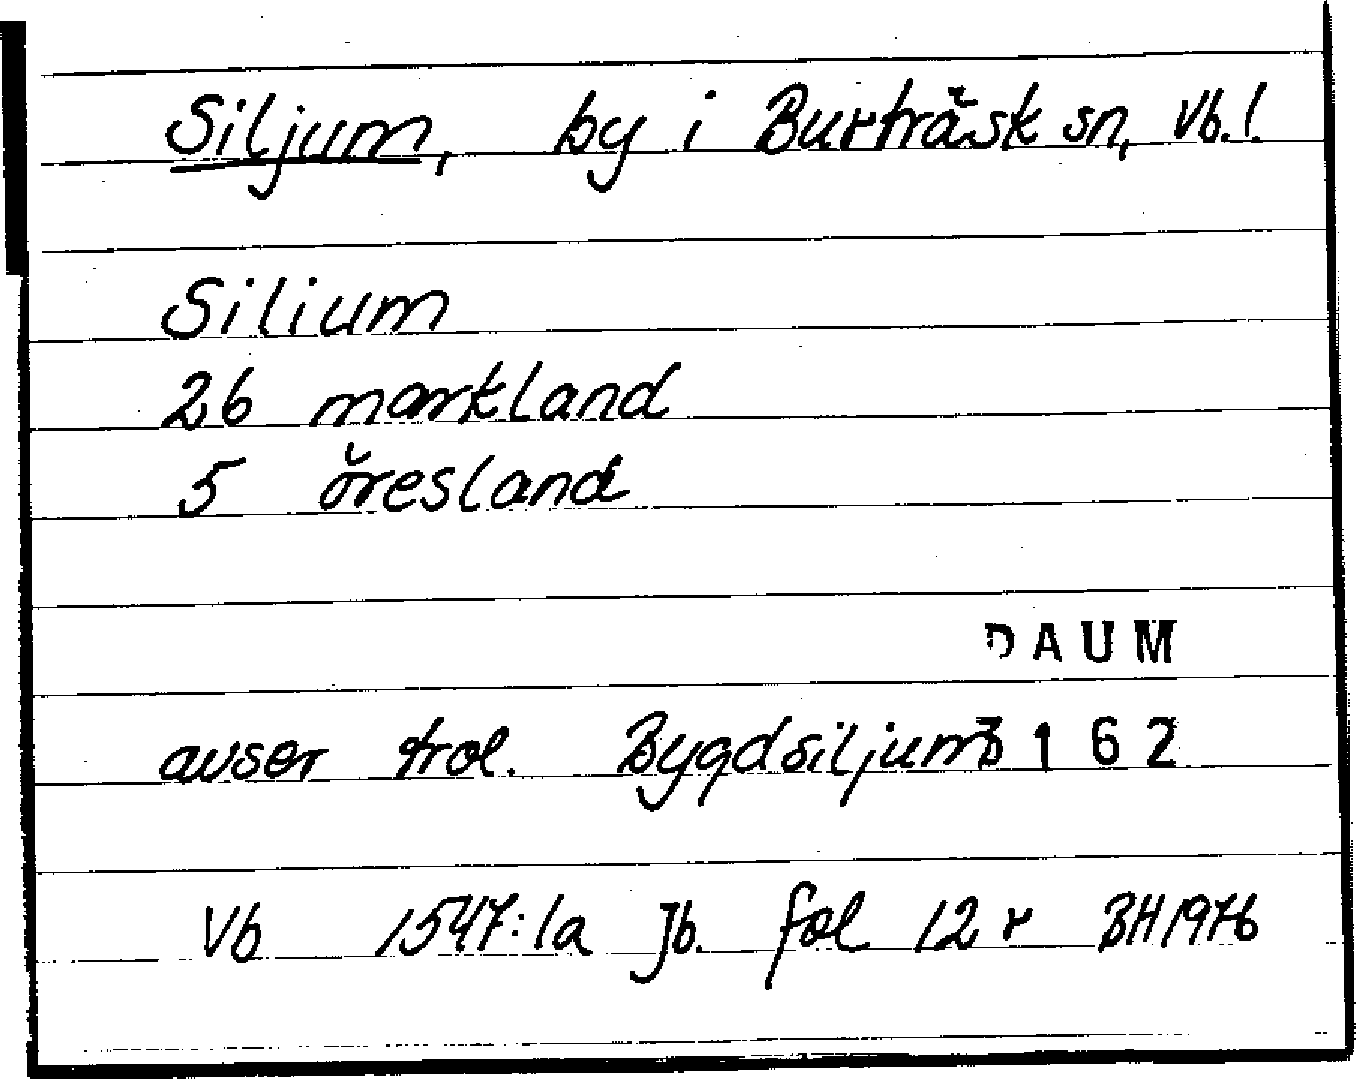 Siljum, by i Burträsk sn, Vb.l.
Silium
26 markland
5 öresland
DAUM
avser trol. Bygdsiljum 3162
Vb 1547:1a Jb. fol 12 r BH1976